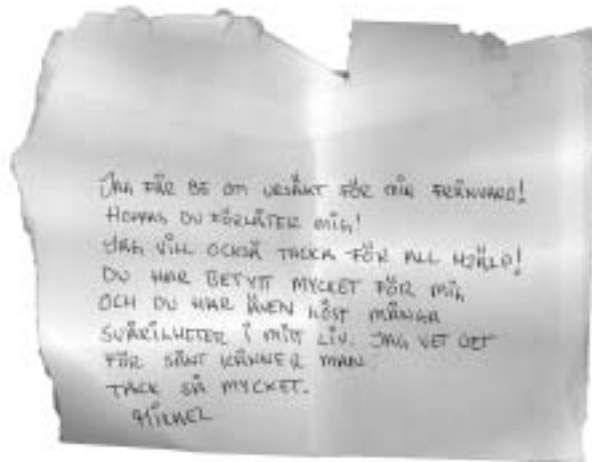 JAG FÅR BE OM URSÄKT FÖR MIN FRÅNVARO!
HOPPAS DU FÖRLÅTER MIG!
JAG VILL OCKSÅ TACKA FÖR ALL HJÄLP!
DU HAR BETYTT MYCKET FÖR MIG
OCH DU HAR ÄVEN LÖST MÅNGA
SVÅRIGHETER I MITT LIV. JAG VET DET
FÖR SÅNT KÄNNER MAN.
TACK SÅ MYCKET.
MIKAEL